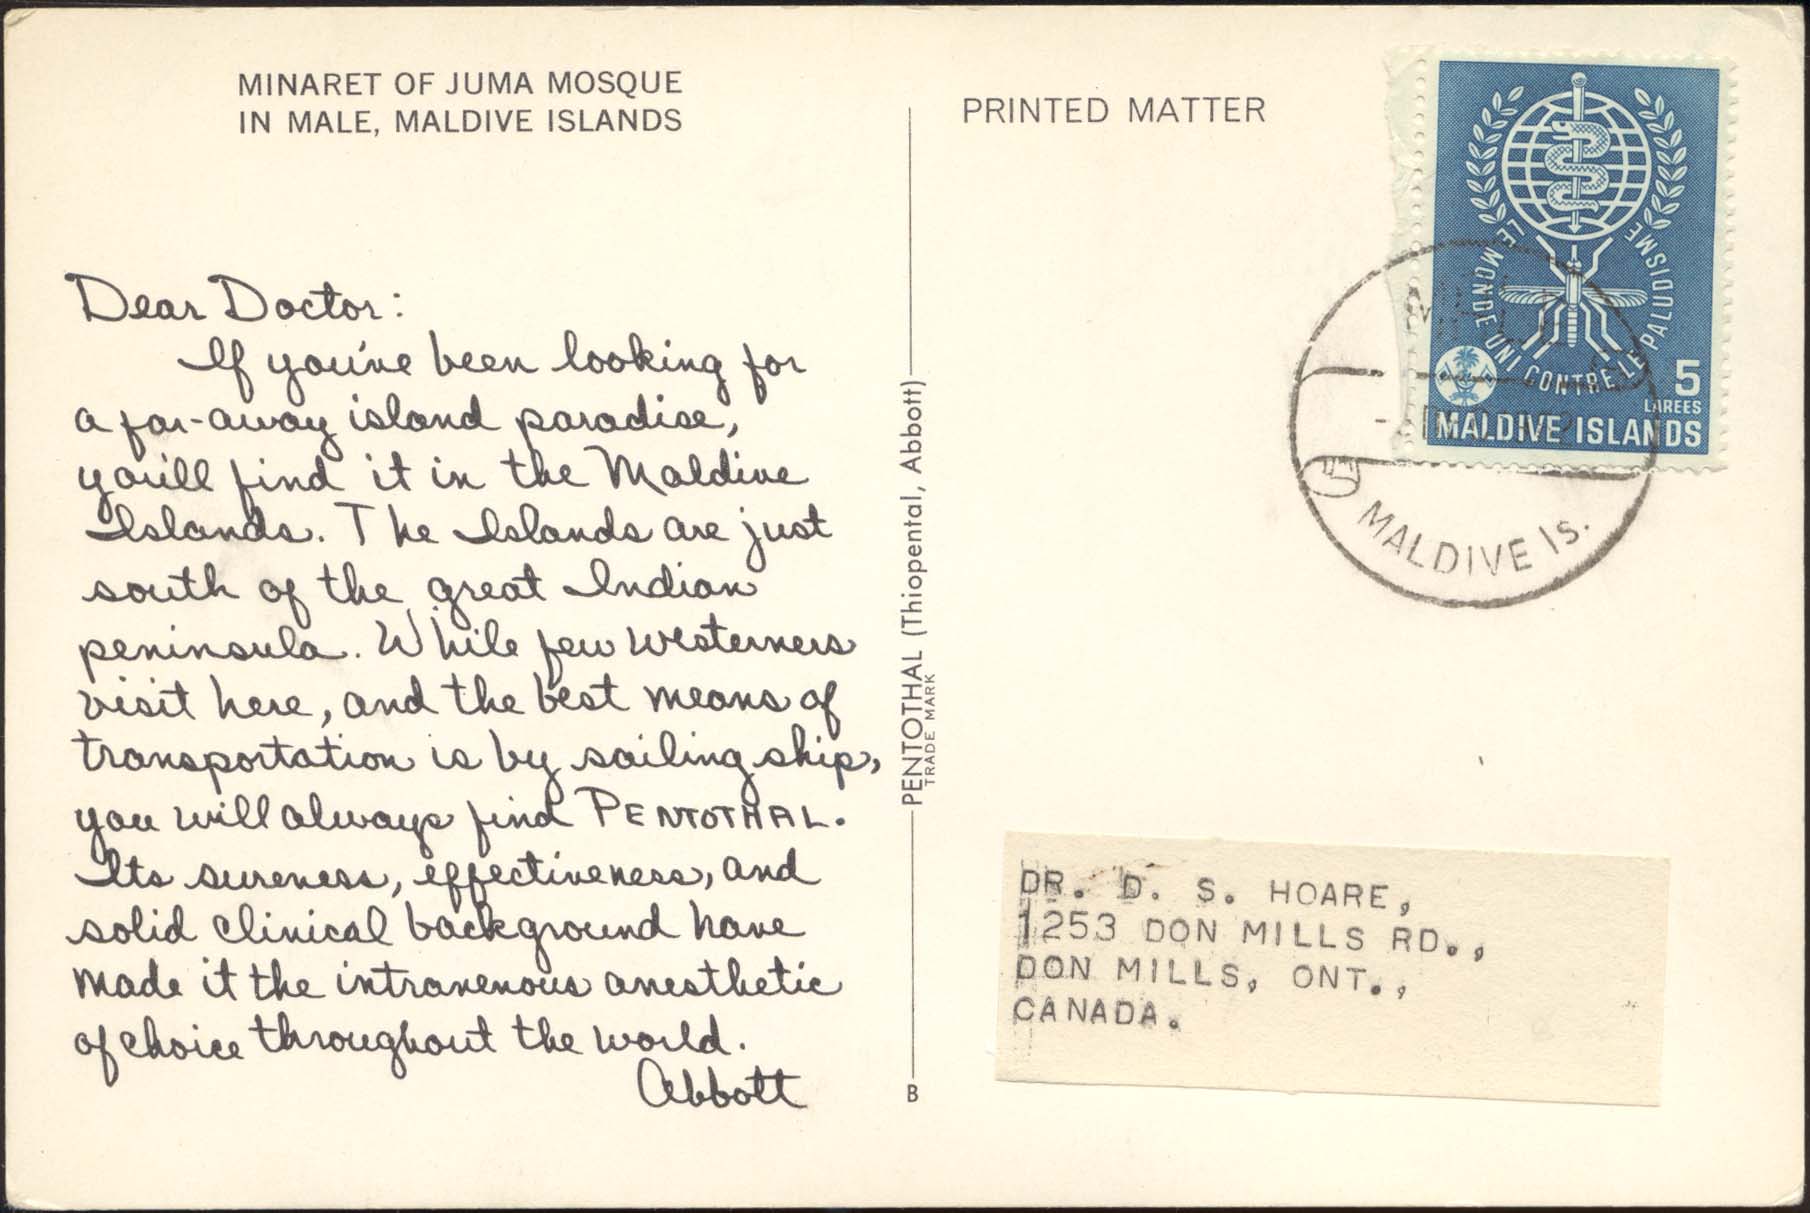 MINARET OF JUMA MOSQUE
IN MALE, MALDIVE ISLANDS
Dear Doctor:
If you've been looking for
a far-away island paradise,
you'll find it in the Maldive
Islands. The Islands are just
south of the great Indian
peninsula. While few westerners
visit here, and the best means of
transportation is by sailing ship,
you will always find PENTOTHAL.
Its sureness, effectiveness, and
solid clinical background have
made it the intravenous anesthetic
of choice throughout the world.
Abbott
PENTOTHAL (Thiopental, Abbott)
TRADE MARK
B
PRINTED MATTER
LE MONDE UNI CONTRE LE PALUDISME
5
LAREES
MALDIVE ISLANDS
MALDIVE Is.
DR. D. S. HOARE,
1253 DON MILLS RD.,
DON MILLS, ONT.,
CANADA.